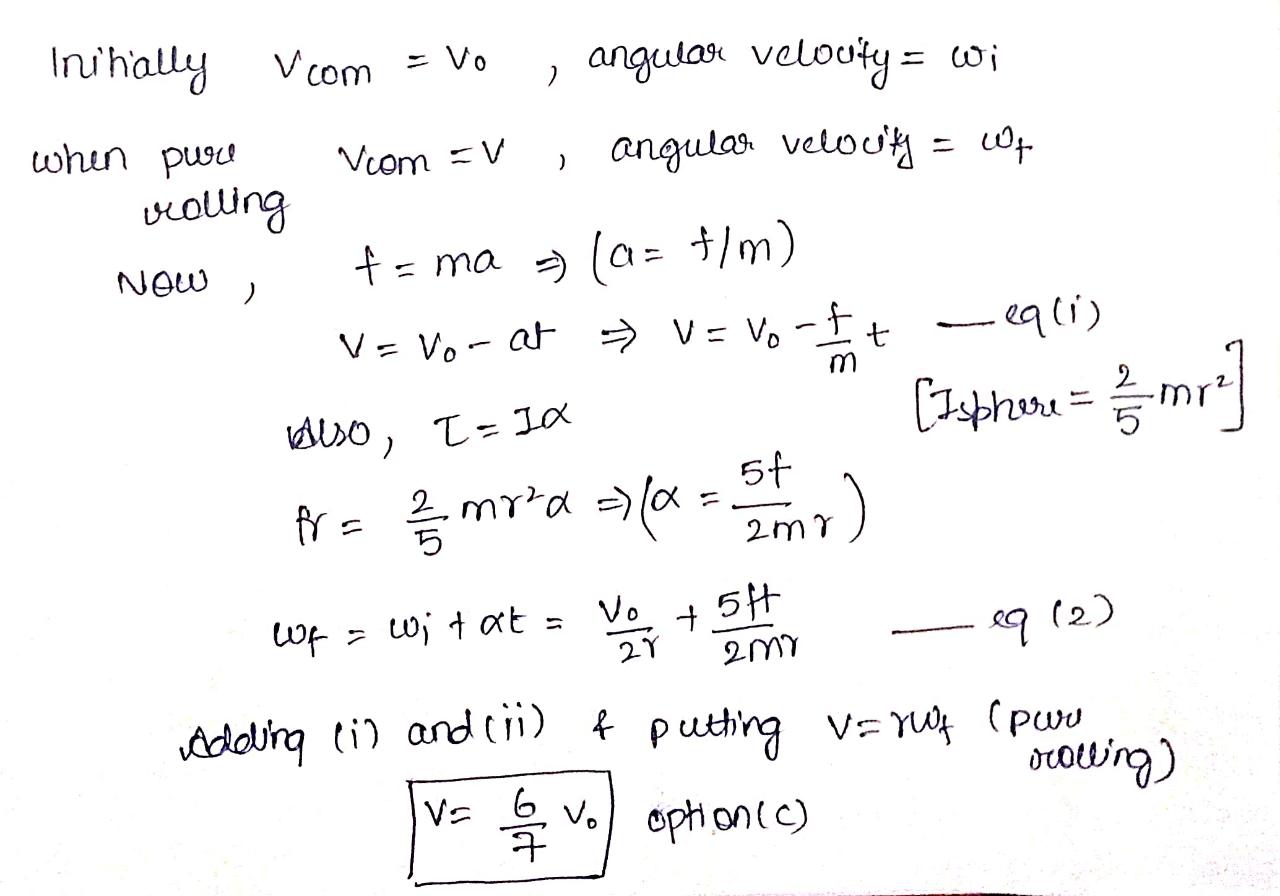 Initially Vcom = Vo , angular velocity = ωi
when pure Vcom = V , angular velocity = ωf
rolling
Now , f = ma ⇒ (a = f/m)
V = Vo - at ⇒ V = Vo - f/m t — eq(i)
[Isphere = 2/5 mr²]
Also, τ = Iα
fr = 2/5 mr²α ⇒ (α = 5f/2mr)
ωf = ωi + αt = Vo/2r + 5ft/2mr — eq (2)
Adding (i) and (ii) & putting V = rωf (pure
rolling)
V = 6/7 Vo option (c)